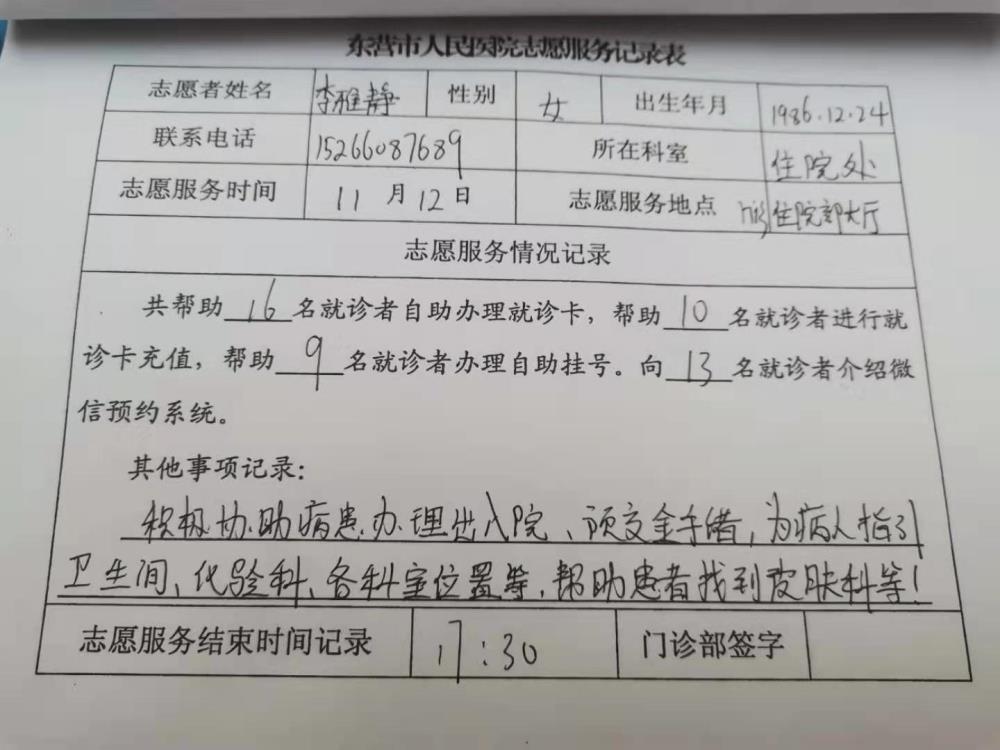 东营市人民医院志愿服务记录表
志愿者姓名 李雅静 性别 女 出生年月 1986.12.24
联系电话 15266087689 所在科室 住院处
志愿服务时间 11月12日 志愿服务地点 住院部大厅
志愿服务情况记录
共帮助16名就诊者自助办理就诊卡，帮助10名就诊者进行就
诊卡充值，帮助9名就诊者办理自助挂号。向13名就诊者介绍微
信预约系统。
其他事项记录：
积极协助病患办理出入院、预交金手续，为病人指引
卫生间、化验科、各科室位置等，帮助患者找到皮肤科等！
志愿服务结束时间记录 17:30 门诊部签字